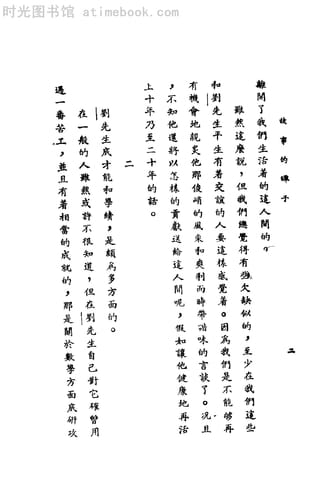 时光图书馆 atimebook.com
故事的碑子
二
離開了我們生活着的這人間的
雖然這麼說，但我們總覺得有些欠缺似的，至少在我們這些
和劉先生平生有着交誼的人要這樣感覺着。因爲我們是不能够再
有機會地親炙他那俊峭的風采和爽利而時帶諧味的言談了。况且
，不知他還將以怎樣的貢獻送給這人間呢，假如讓他健康地再活
上十年乃至二十年的話。
二
劉先生底才能和學績，是頗爲多方面的。
在一般的人雖然或許不很知道，但在劉先生自己對它確曾用
過一番苦工，並且有着相當的成就的，那是關於數學方面底研攻